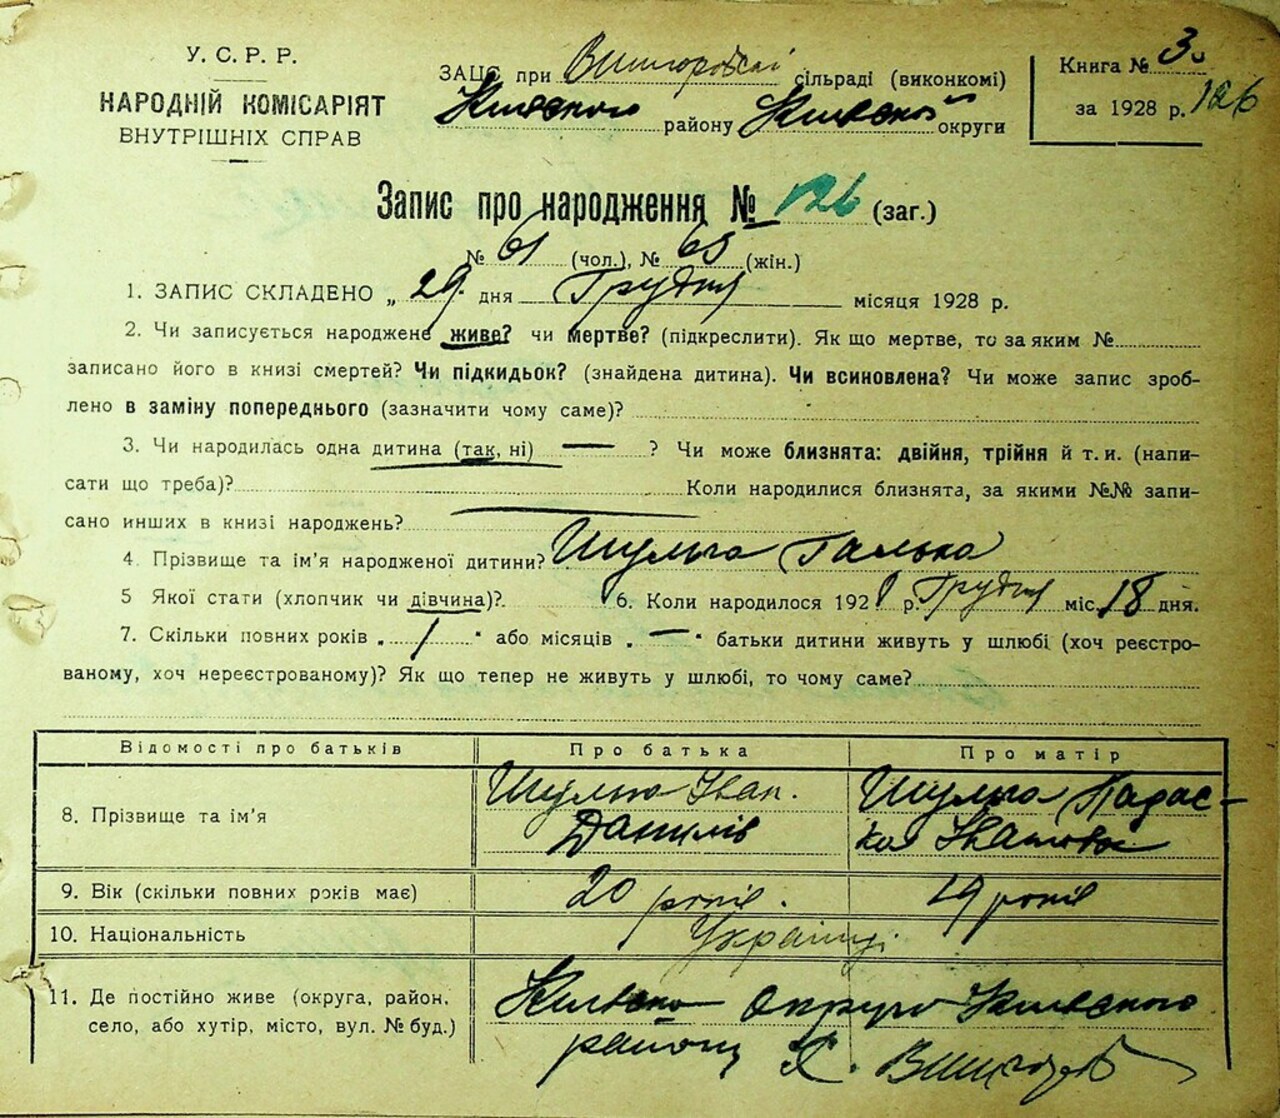 У. С. Р. Р.
НАРОДНІЙ КОМІСАРІЯТ
ВНУТРІШНІХ СПРАВ
ЗАЦС при Вишгородскі сільраді (виконкомі)
Киевского району Киевской округи
Книга № 3.
за 1928 р. 126
Запис про народження № 126 (заг.)
№ 61 (чол.), № 65 (жін.)
1. ЗАПИС СКЛАДЕНО „ 29. дня Грудня місяця 1928 р.
2. Чи записується народжене живе? чи мертве? (підкреслити). Як що мертве, то за яким №
записано його в книзі смертей? Чи підкидьок? (знайдена дитина). Чи всиновлена? Чи може запис зроб-
лено в заміну попереднього (зазначити чому саме)?
3. Чи народилась одна дитина (так, ні) — ? Чи може близнята: двійня, трійня й т. и. (напи-
сати що треба)? Коли народилися близнята, за якими №№ запи-
сано инших в книзі народжень?
4. Прізвище та ім'я народженої дитини? Шульга Галька
5 Якої стати (хлопчик чи дівчина)? 6. Коли народилося 1928 р. Грудня міс. 18 дня.
7. Скільки повних років „ 1 " або місяців „ — " батьки дитини живуть у шлюбі (хоч реєстро-
ваному, хоч нереєстрованому)? Як що тепер не живуть у шлюбі, то чому саме?
Відомості про батьків Про батька Про матір
8. Прізвище та ім'я Шульга Іван. Шульга Парас-
Данилів ка Івановна
9. Вік (скільки повних років має) 20 років. 19 років
10. Національність Українці
11. Де постійно живе (округа, район, Киевско Округо Киевского
село, або хутір, місто, вул. № буд.) району С. Вишгород